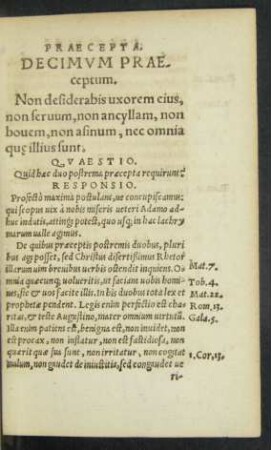 PRAECEPTA.
DECIMVM PRAE-
ceptum.
Non desiderabis uxorem eius,
non seruum, non ancyllam, non
bouem, non asinum, nec omnia
quę illius sunt.
QVAESTIO.
Quid hæc duo postrema præcepta requirunt?
RESPONSIO.
Profectò maxima postulant, ne concupiscamus:
qui scopus uix à nobis miseris ueteri Adamo ad-
huc indutis, attingi potest, quo usq; in hac lachry
marum ualle agimus.
De quibus præceptis postremis duobus, pluri
bus agi posset, sed Christus disertissimus Rhetor
illarum uim breuibus uerbis ostendit inquiens. O-
mnia quæcunq; uolueritis, ut faciant uobis homi-
nes, sic & uos facite illis. In his duobus tota lex et
prophetæ pendent. Legis enim perfectio est cha-
ritas, & teste Augustino, mater omnium uirtutū.
Illa enim patiens est, benigna est, non inuidet, non
est procax, non inflatur, non est fastidiosa, non
quærit quæ sua sunt, non irritatur, non cogitat
malum, non gaudet de iniustitia, sed congaudet ue
ri-
Mat.7.
Tob.4.
Mat.22.
Rom.13.
Gala.5.
1.Cor.13.